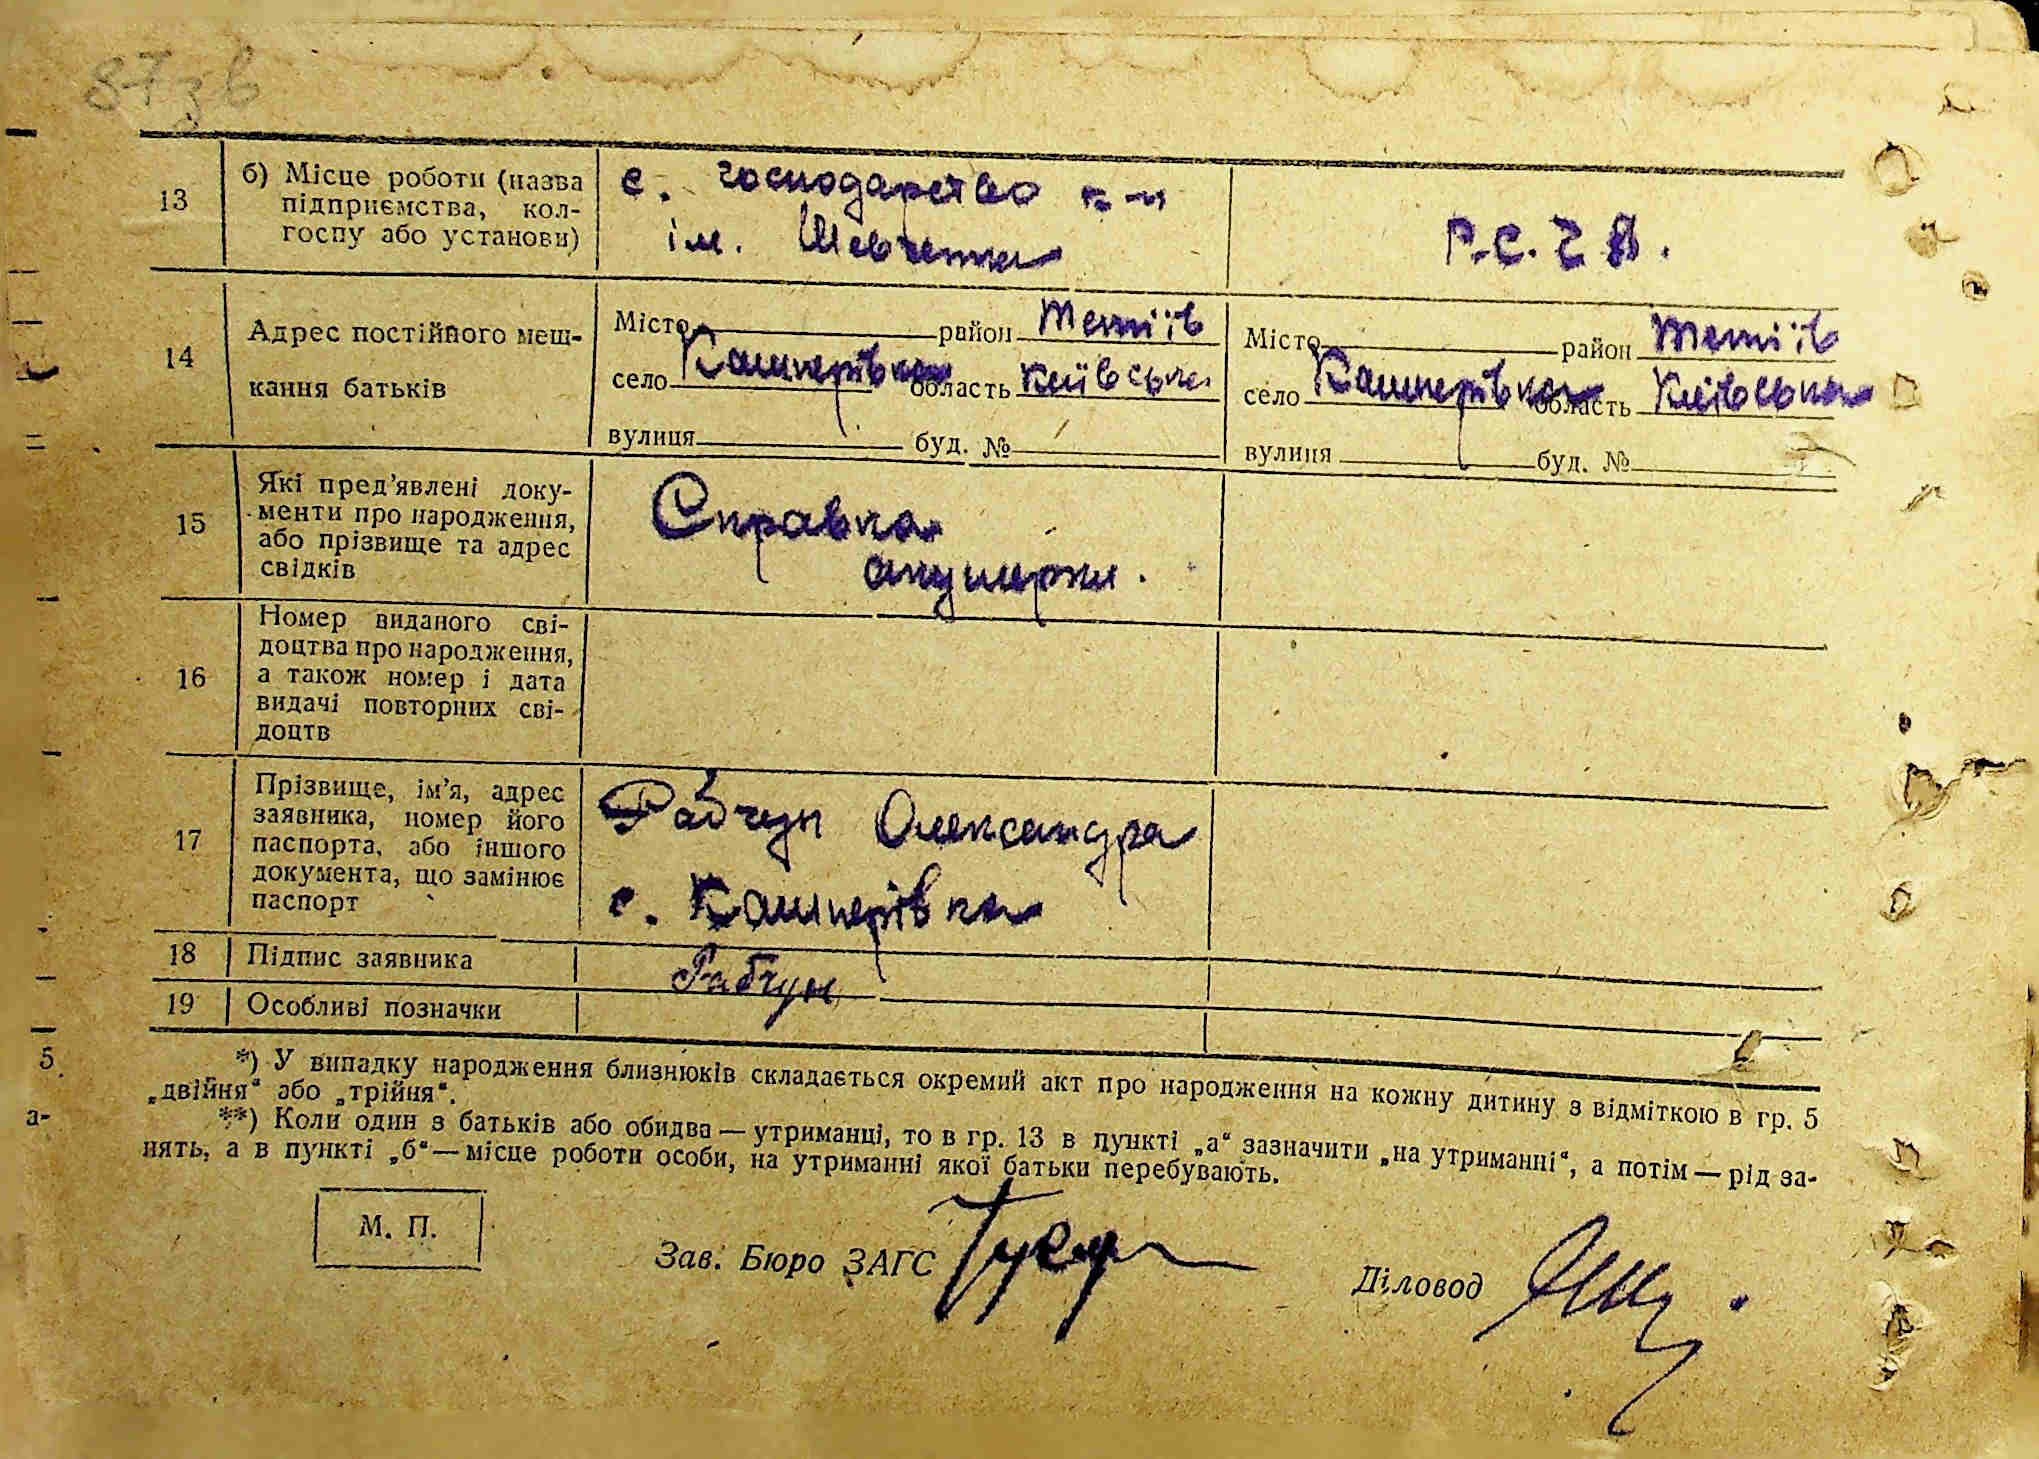 87 зв
13
б) Місце роботи (назва
підприємства, кол-
госпу або установи)
с. господарство к-п
ім. Шевченка
Р.С.Ч.А.
14
Адрес постійного меш-
кання батьків
Місто район Тетіїв
село Кашперівка область Київська
вулиця буд. №
Місто район Тетіїв
село Кашперівка область Київська
вулиця буд. №
15
Які пред'явлені доку-
менти про народження,
або прізвище та адрес
свідків
Справка
акушерки.
16
Номер виданого сві-
доцтва про народження,
а також номер і дата
видачі повторних сві-
доцтв
17
Прізвище, ім'я, адрес
заявника, номер його
паспорта, або іншого
документа, що замінює
паспорт
Рабчун Олександра
с. Кашперівка
18 Підпис заявника Рабчун
19 Особливі позначки
5
*) У випадку народження близнюків складається окремий акт про народження на кожну дитину з відміткою в гр. 5
„двійня“ або „трійня“.
а-
**) Коли один з батьків або обидва — утриманці, то в гр. 13 в пункті „а“ зазначити „на утриманні“, а потім — рід за-
нять, а в пункті „б“ — місце роботи особи, на утриманні якої батьки перебувають.
М. П.
Зав. Бюро ЗАГС
Діловод